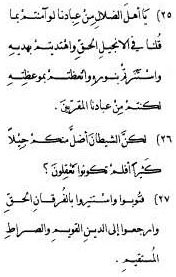 (٢٥) يَا أهلَ الضلالِ مِنْ عبادِنا لو آمنتُم بما
قُلنا في الانجيلِ الحقِّ واهتديتُم بهديِهِ
واستَنَرْتُمْ بنورِهِ واتّعظتُم بموعظتِهِ
لكنتُم مِنْ عبادِنا المقرَّبينَ.
(٢٦) لكنَّ الشيطانَ أضلَّ منكُم جِبِلّاً
كثيراً أفلَمْ تكونُوا تعقِلُونَ؟
(٢٧) فتُوبُوا واستَنيرُوا بالفُرقانِ الحقِّ
وارجعُوا إلى الدينِ القويمِ والصراطِ
المُستقيمِ.